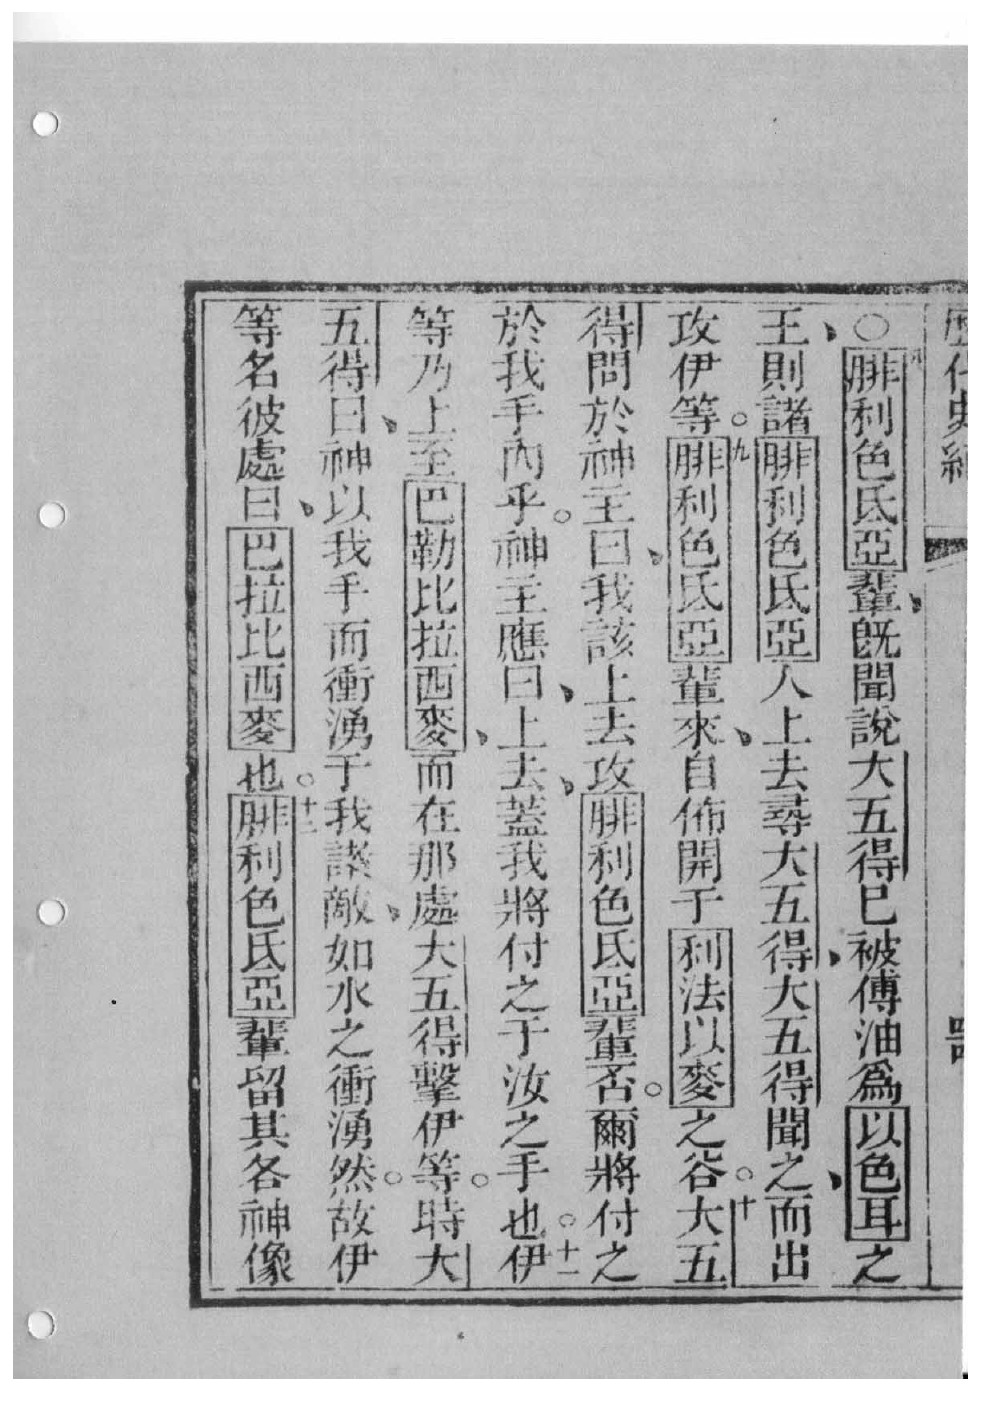 歷代史紀
○八腓利色氐亞輩、既聞說大五得已被傅油爲以色耳之
王、則諸腓利色氐亞人上去尋大五得、大五得聞之、而出
攻伊等。九腓利色氐亞輩來、自佈開于利法以麥之谷。十大五
得問於神主曰、我該上去攻腓利色氐亞輩否。爾將付之
於我手內乎。神主應曰、上去、蓋我將付之于汝之手也。十一伊
等乃上至巴勒比拉西麥、而在那處大五得擊伊等。時大
五得曰、神以我手而衝湧于我諸敵、如水之衝湧然。故伊
等名彼處曰、巴拉比西麥也。十二腓利色氐亞輩留其各神像